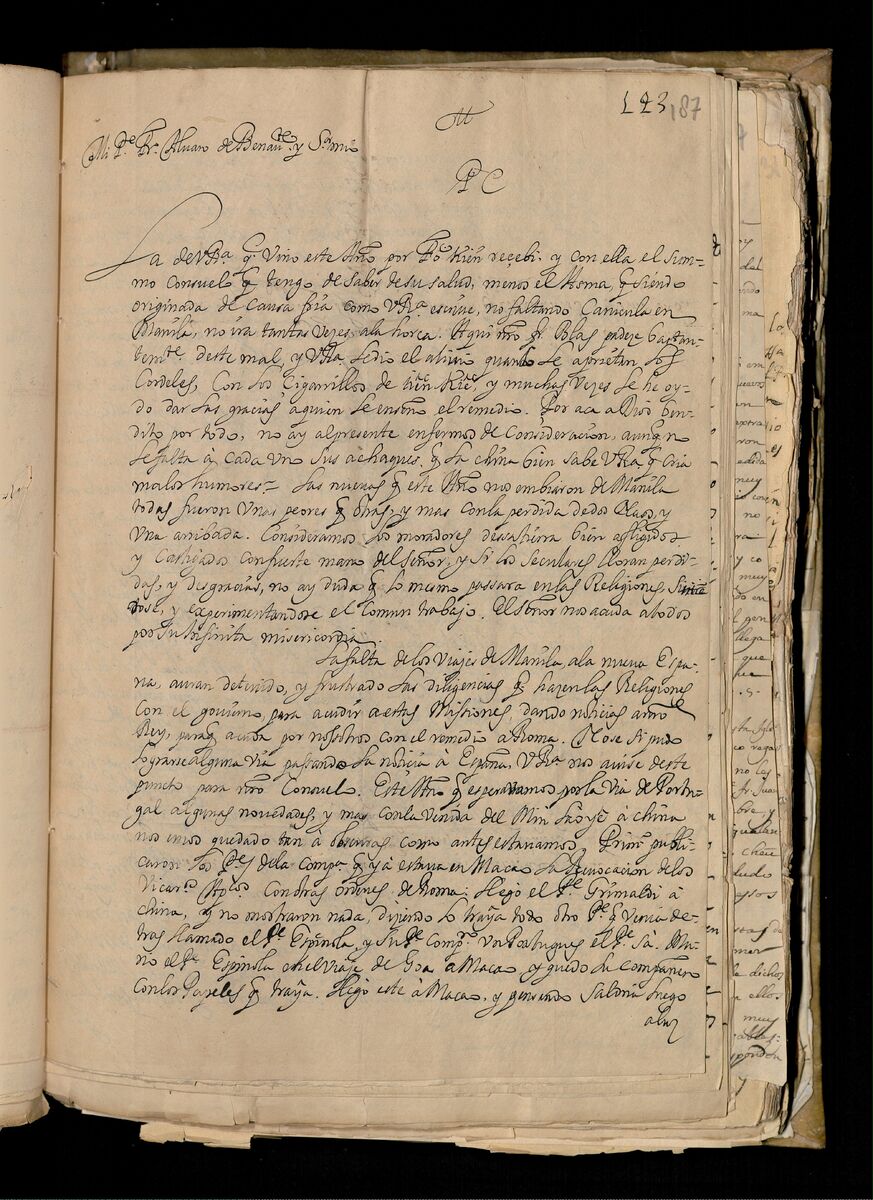 123 187
Mi Pe. Fr. Alvaro de Benaute. y Sor. mio
P C
La de V Ra. q vino este Año por Fo Kien reçebi. y con ella el sum-
mo consuelo q tengo de saber de su salud, menos el Asma, q siendo
originada de causa fria como V Ra. escriue, no faltando Canicula en
Manila, no ira tantas vezes a la horca. Aqui nro. Fr. Blas padeze bastan-
temte. deste mal, y V Ra. le dio el aliuio quando le aprietan los
Cordeles, con los Cigarrillos de, y muchas vezes le he oy-
do dar las gracias a quien le enseño el remedio. Por aca a Dios ben-
dito por todo, no ay al presente enfermos de Consideracion, aunq no
le falta à cada uno sus achaques, q la china bien sabe V Ra. q cria
malos humores. Las nueuas q este Año nos embiaron de Manila
todas fueron unas peores q otras, y mas con la perdida de dos Naos, y
una arribada. Consideramos los moradores dessa tierra bien afligidos
y castigados con fuerte mano del Señor, y si los seculares lloran perdi-
das, y desgracias, no ay duda q lo mesmo passara en las Religiones,
y experimentandose el comun trabajo. El Señor nos acuda a todos
por su infinita misericordia.
La falta de los Viajes de Manila a la nueua Espa-
ña, auran detenido, y frustrado las diligencias q hazen las Religiones
con el gouierno, para acudir a estas Missiones, dando noticias a nro
Rey, paraq acuda por nosotros con el remedio a Roma. No se si pudo
lograrse alguna via passando la noticia à España, V Ra. nos auise deste
puncto para nro Consuelo. Este Año q esperauamos por la via de Portu-
gal algunas nouedades, y mas con la venida del Min Lao ye à china
nos emos quedado tan à obscuras como antes estauamos. Primo. publi-
caron los Pes. de la Compa. q ya estaua en Macao la Reuocacion de los
Vicaros. Aplos. con otras ordenes de Roma. llegò el Pe. Grimaldi à
china, y no mostraron nada, diziendo lo traya todo otro Pe. q venia de-
tras llamado el Pe. Espinola, y su Pe. Compo. un Portugues el Pe. Sà. Mu-
rio el Pe. Espinola en el viaje de Goa a Macao, y quedo su compañero
con los Papeles q traya. llegò este à Macao, y pensando saldria luego
a luz